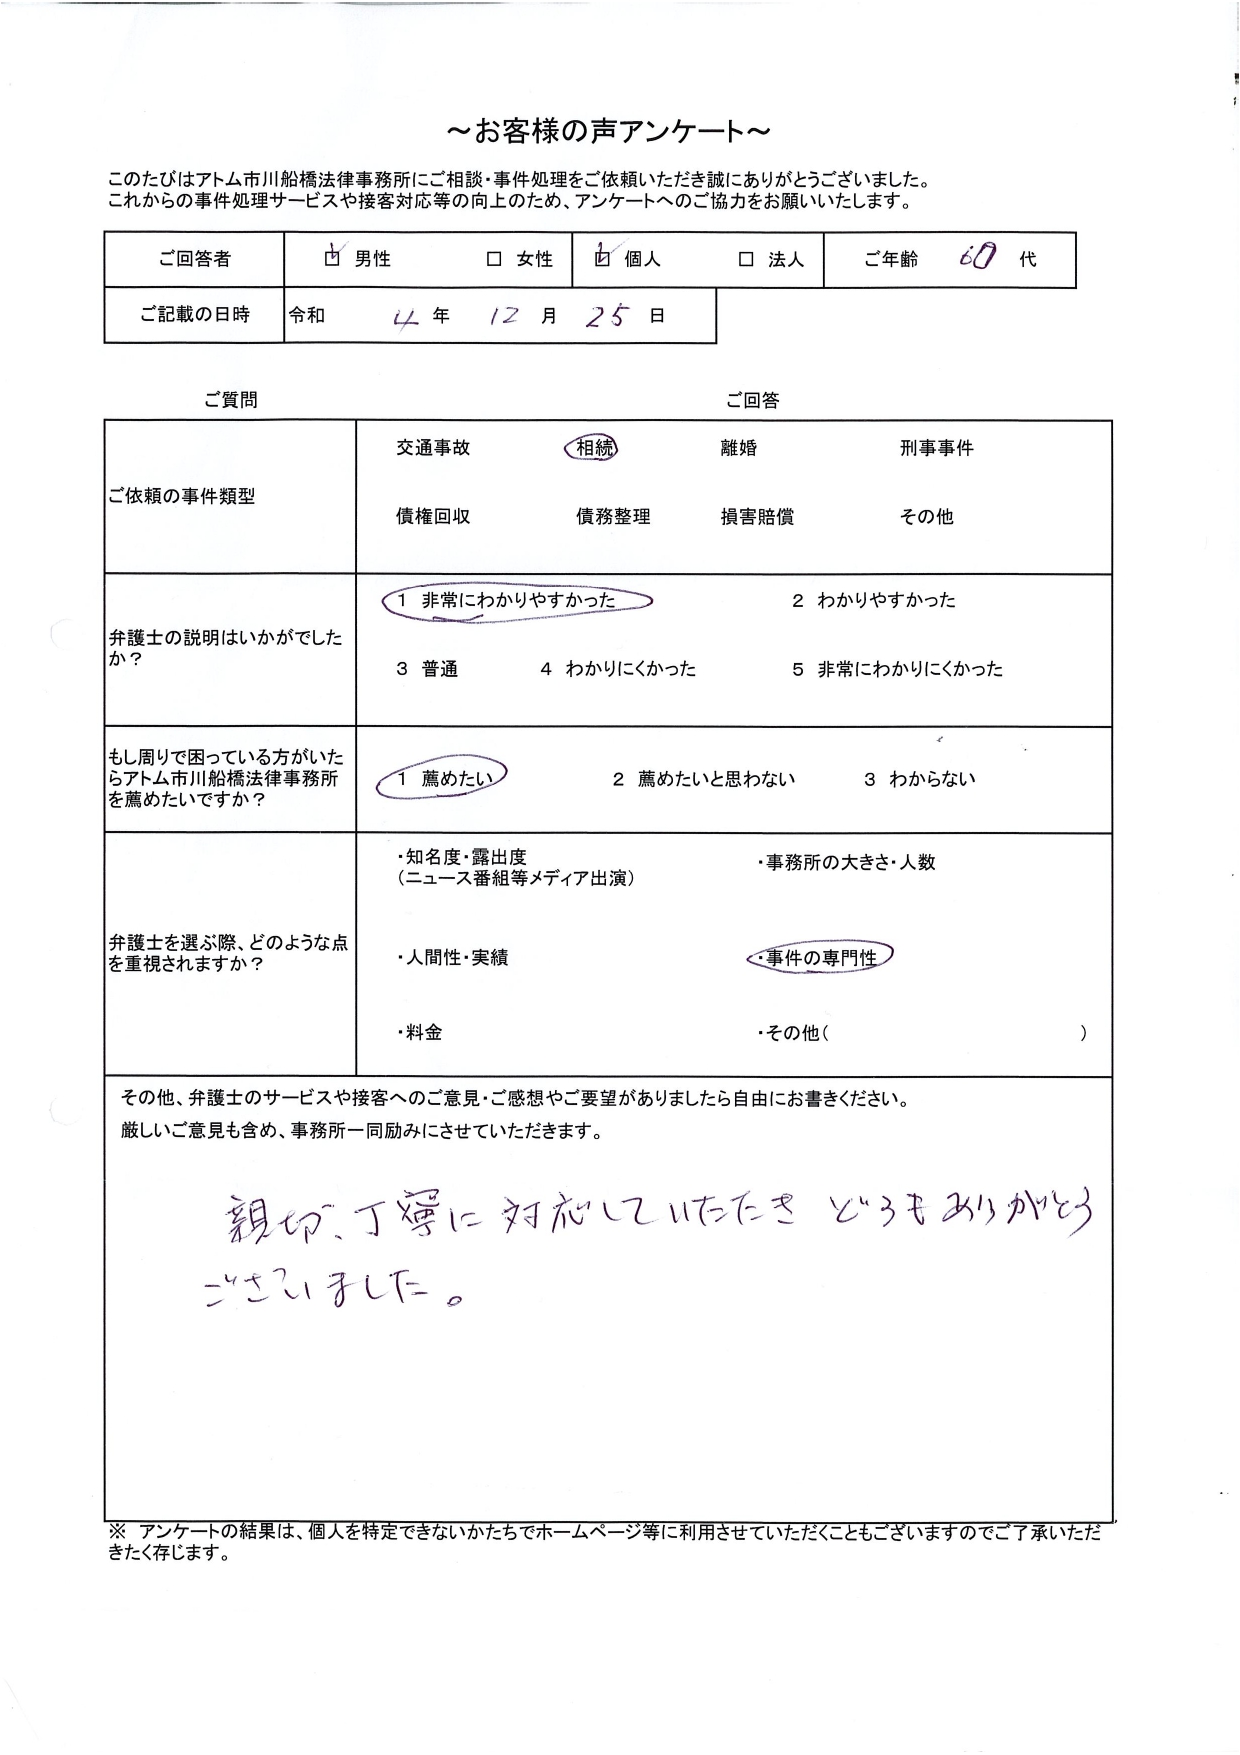 ～お客様の声アンケート～
このたびはアトム市川船橋法律事務所にご相談・事件処理をご依頼いただき誠にありがとうございました。
これからの事件処理サービスや接客対応等の向上のため、アンケートへのご協力をお願いいたします。
ご回答者 ☑ 男性 □ 女性 ☑ 個人 □ 法人 ご年齢 60 代
ご記載の日時 令和 4 年 12 月 25 日
ご質問 ご回答
交通事故 相続 離婚 刑事事件
ご依頼の事件類型
債権回収 債務整理 損害賠償 その他
1 非常にわかりやすかった 2 わかりやすかった
弁護士の説明はいかがでした
か？
3 普通 4 わかりにくかった 5 非常にわかりにくかった
もし周りで困っている方がいた
らアトム市川船橋法律事務所
を薦めたいですか？
1 薦めたい 2 薦めたいと思わない 3 わからない
・知名度・露出度
（ニュース番組等メディア出演）
・事務所の大きさ・人数
弁護士を選ぶ際、どのような点
を重視されますか？
・人間性・実績 ・事件の専門性
・料金 ・その他（ ）
その他、弁護士のサービスや接客へのご意見・ご感想やご要望がありましたら自由にお書きください。
厳しいご意見も含め、事務所一同励みにさせていただきます。
親切、丁寧に対応していたたき どうもありがとう
ございました。
※ アンケートの結果は、個人を特定できないかたちでホームページ等に利用させていただくこともございますのでご了承いただ
きたく存じます。